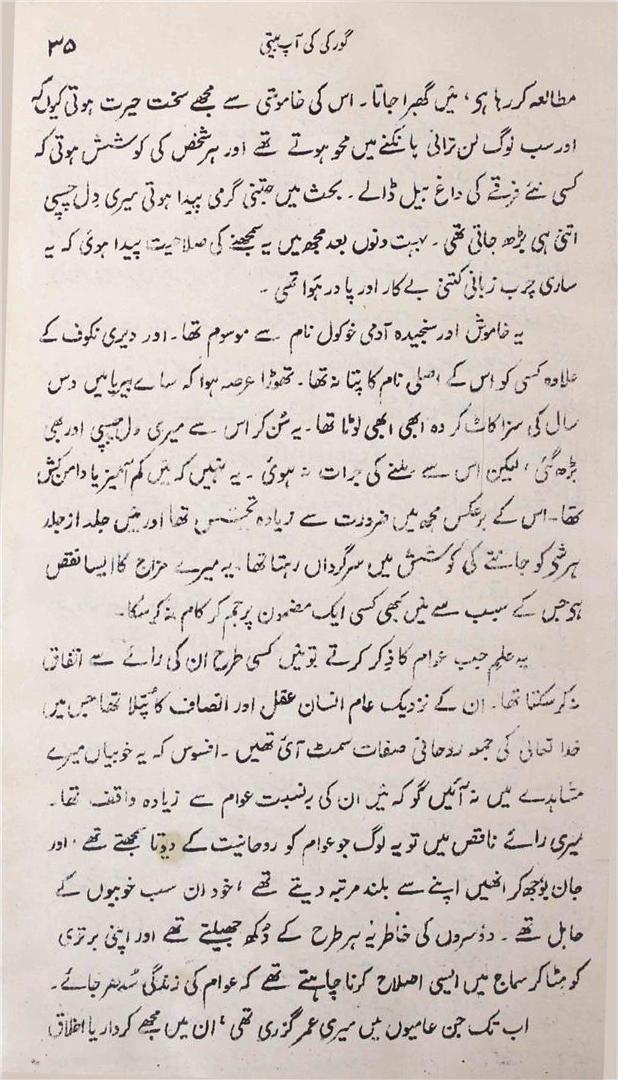 گورکی کی آپ بیتی ۳۵
مطالعہ کر رہا ہی، میں گھبرا جاتا۔ اس کی خاموشی سے مجھے سخت حیرت ہوتی کیوں کہ
اور سب لوگ لن ترانی ہانکنے میں محو ہوتے تھے اور ہر شخص کی کوشش ہوتی کہ
کسی نئے فرقے کی داغ بیل ڈالے۔ بحث میں جتنی گرمی پیدا ہوتی میری دل چسپی
اتنی ہی بڑھ جاتی تھی۔ بہت دنوں بعد مجھ میں یہ سمجھنے کی صلاحیت پیدا ہوئی کہ یہ
ساری چرب زبانی کتنی بے کار اور پا در ہوا تھی۔
یہ خاموش اور سنجیدہ آدمی خوکول نام سے موسوم تھا۔ اور دیری نکوف کے
علاوہ کسی کو اس کے اصلی نام کا پتا نہ تھا۔ تھوڑا عرصہ ہوا کہ سائے بیریا میں دس
سال کی سزا کاٹ کر وہ ابھی ابھی لوٹا تھا۔ یہ سُن کر اس سے میری دل چسپی اور بھی
بڑھ گئی، لیکن اس سے ملنے کی جرات نہ ہوئی۔ یہ نہیں کہ میں کم آمیز یا دامن کش
تھا۔ اس کے برعکس مجھ میں ضرورت سے زیادہ تجسّس تھا اور میں جلد از جلد
ہر شی کو جاننے کی کوشش میں سرگرداں رہتا تھا۔ یہ میرے مزاج کا ایسا نقص
ہی جس کے سبب سے میں کبھی کسی ایک مضمون پر جم کر کام نہ کر سکا۔
یہ علم جب عوام کا ذِکر کرتے تو میں کسی طرح ان کی رائے سے اتفاق
نہ کر سکتا تھا۔ اِن کے نزدیک عام انسان عقل اور انصاف کا پُتلا تھا جس میں
خدا تعالیٰ کی جمعہ روحانی صفات سمٹ آئی تھیں۔ افسوس کہ یہ خوبیاں میرے
مشاہدے میں نہ آئیں گو کہ میں ان کی بہ نسبت عوام سے زیادہ واقف تھا۔
میری رائے ناقص میں تو یہ لوگ جو عوام کو روحانیت کے دیوتا سمجھتے تھے، اور
جان بوجھ کر انھیں اپنے سے بلند مرتبہ دیتے تھے، خود ان سب خوبیوں کے
حامل تھے۔ دوسروں کی خاطر یہ ہر طرح کے دُکھ جھیلتے تھے اور اپنی برتری
کو مٹا کر سماج میں ایسی اصلاح کرنا چاہتے تھے کہ عوام کی زندگی سُدھر جائے۔
اب تک جن عامیوں میں میری عمر گزری تھی، ان میں مجھے کردار یا اخلاق